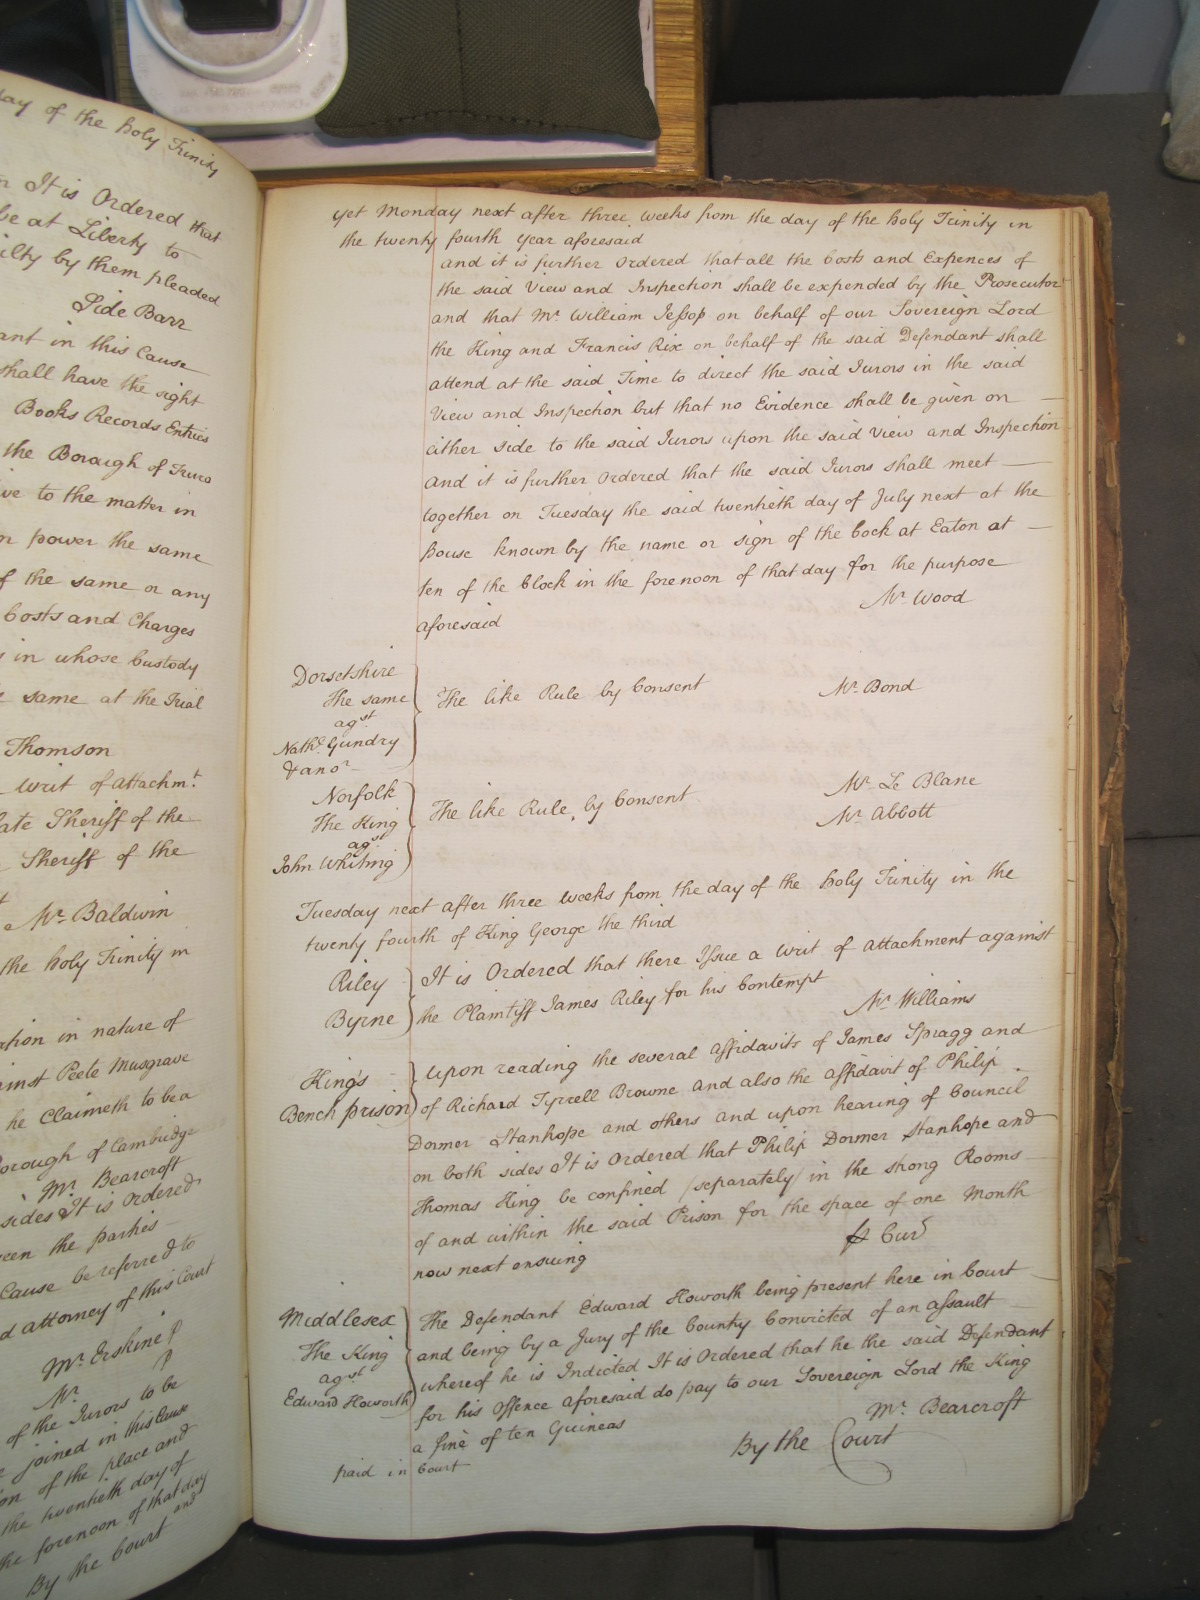 day of the holy Trinity
It is Ordered that
be at Liberty to
by them pleaded
Side Barr
in this Cause
shall have the sight
Books Records Entries
the Borough of Truro
to the matter in
power the same
of the same or any
Costs and Charges
in whose Custody
same at the Trial
Thomson
writ of attachmt.
late Sheriff of the
Sheriff of the
Mr. Baldwin
the holy Trinity in
in nature of
Peete Musgrave
he Claimeth to be a
Borough of Cambridge
Mr. Bearcroft
sides It is Ordered
the parties
Cause be referred to
attorney of this Court
Mr. Erskine
Mr.
of the Jurors to be
joined in this Cause
of the place and
the twentieth day of
the forenoon of that day
and
By the Court
yet Monday next after three weeks from the day of the holy Trinity in
the twenty fourth year aforesaid
and it is further Ordered that all the Costs and Expences of
the said View and Inspection shall be expended by the Prosecutor
and that Mr. William Jessop on behalf of our Sovereign Lord
the King and Francis Rix on behalf of the said Defendant shall
attend at the said Time to direct the said Jurors in the said
View and Inspection but that no Evidence shall be given on
either side to the said Jurors upon the said View and Inspection
and it is further Ordered that the said Jurors shall meet
together on Tuesday the said twentieth day of July next at the
House known by the name or sign of the Cock at Eaton at
ten of the Clock in the forenoon of that day for the purpose
aforesaid
Mr. Wood
Dorsetshire
The same
agst
Nathl. Gundry
& anor.
The like Rule by Consent
Mr. Bond
Norfolk
The King
agst
John Whiting
The like Rule by Consent
Mr. Le Blanc
Mr. Abbott
Tuesday next after three weeks from the day of the holy Trinity in the
twenty fourth of King George the third
Riley
Byrne
It is Ordered that there Issue a writ of attachment against
the Plaintiff James Riley for his Contempt
Mr. Williams
King's
Bench prison
Upon reading the several affidavits of James Spragg and
of Richard Tyrrell Browne and also the affidavit of Philip
Dormer Stanhope and others and upon hearing of Council
on both sides It is Ordered that Philip Dormer Stanhope and
Thomas King be confined (separately) in the strong Rooms
of and within the said Prison for the space of one Month
now next ensuing
Cur
Middlesex
The King
agst
Edward Howorth
The Defendant Edward Howorth being present here in Court
and being by a Jury of the County Convicted of an assault
whereof he is Indicted It is Ordered that he the said Defendant
for his Offence aforesaid do pay to our Sovereign Lord the King
a fine of ten Guineas
Mr. Bearcroft
By the Court
paid in Court